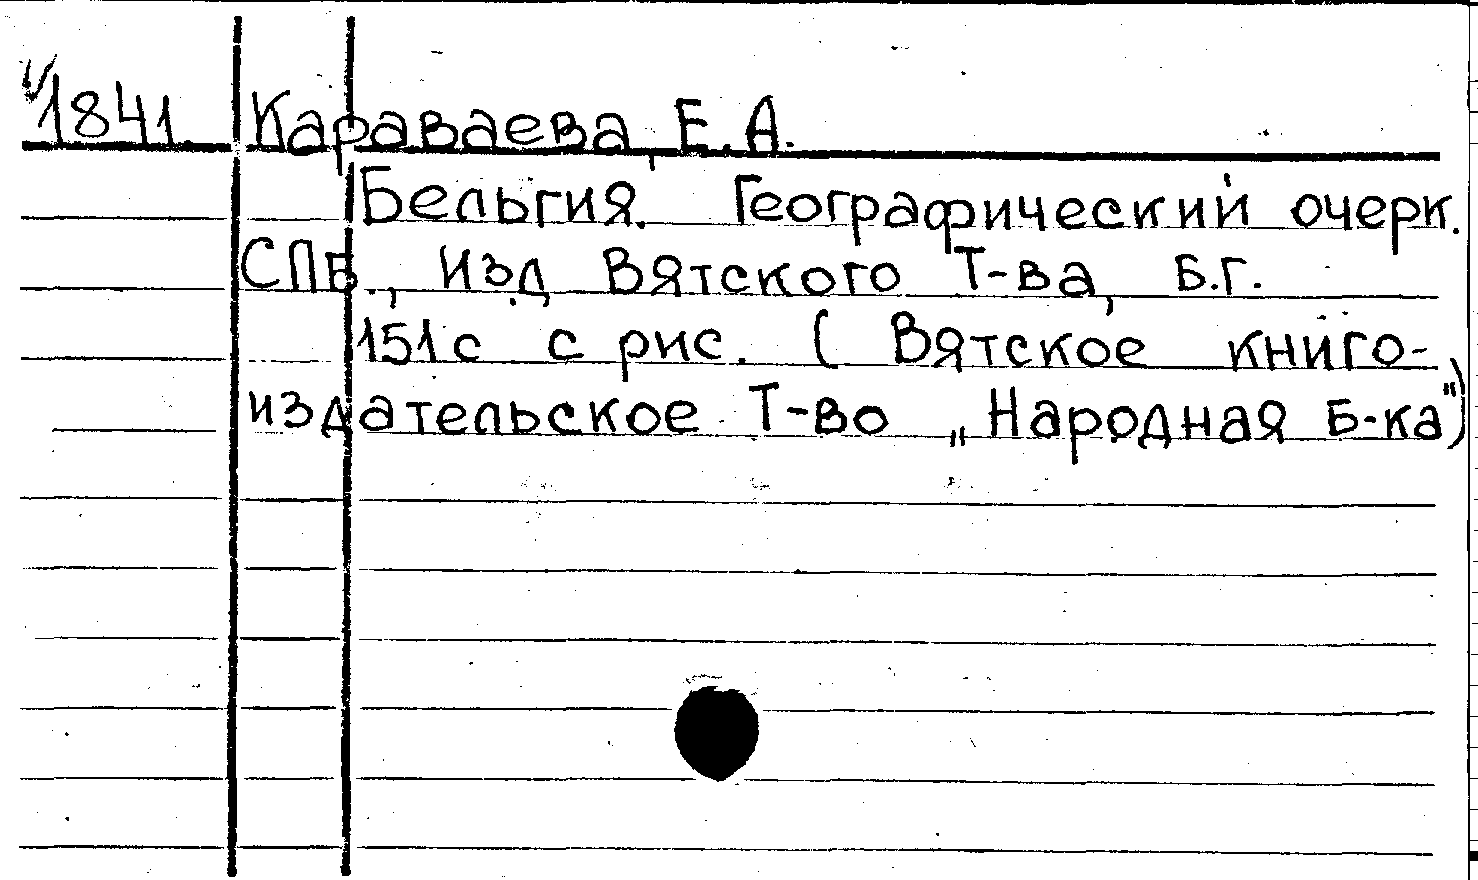 1841 Караваева, Е.А.
Бельгия. Географический очерк.
СПБ., Изд. Вятского Т-ва, Б.Г.
151с с рис. ( Вятское книго-
издательское Т-во „Народная Б-ка")